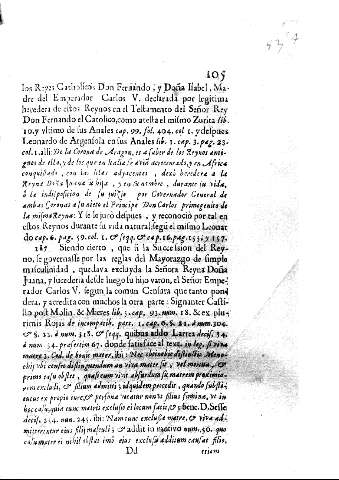 105
los Reyes Catholicos Don Fernando, y Doña Isabel, Ma-
dre del Emperador Carlos V. declarada por legitima
heredera de estos Reynos en el Testamento del Señor Rey
Don Fernando el Catolico, como atesta el mismo Zurita lib.
10. y vltimo de sus Anales cap. 99. fol. 404. col. 1. y despues
Leonardo de Argensola en sus Anal. lib. 1. cap. 3. pag. 23.
col. 1. alli: De la Corona de Aragon, es a saber de los Reynos anti-
guos de ella, y de los que en Italia se avia acrecentado, y en Africa
conquistado, con las Islas adjacentes, dexó heredera à la
Reyna Doña Juana su hija, y en su nombre, durante su vida,
à la indisposicion de su juizio por Governador General de
ambas Coronas à su nieto el Principe Don Carlos primogenito de
la misma Reyna: Y se juró despues, y reconoció por tal en
estos Reynos durante su vida natural, segun el mismo Leonar-
do cap. 6. pag. 59. col. 1. & seqq. & cap. 16. pag. 151. y 157.
187 Siendo cierto, que si la Succession del Rey-
no, se governasse por las reglas del Mayorazgo de simple
masculinidad, quedava excluyda la Señora Reyna Doña
Juana, y sucederia desde luego su hijo varon, el Señor Empe-
rador Carlos V. segun la comun Censura que tanto pon-
dera, y acredita con muchos la otra parte: Signanter Casti-
llo post Molin. & Mieres lib. 3. cap. 93. num. 18. & ex plu-
rimis Rojas de incompatib. part. 1. cap. 6. §. 21. à num. 304.
& §. 22. à num. 318. & seqq. quibus addo Larrea decis. 34.
à num. 34. præsertim 67. donde satisface al text. in leg. si viva
matre 3. Cod. de bonis mater. ibi: Nec obstabit distinctio Meno-
chij vbi censet distinguendum an viva mater sit, vel mortua, &
primo casu obstet, quasi cum vivit absurdum sit matrem proximio-
rem excludi, & filium admitti: id quidem procedit, quando substi-
tutus ex propio iure, & persona vocatur non vt filius femina, vt in
hoc casu, quia tunc matris exclusio et locum facit, & bene. D. Sesse
decis. 234. num. 245. ibi: Nam tunc exclusa matre, & viva ad-
mitterentur eius filij masculi; & addit in motivo num. 56. quo
casu mater ei nihil obstat imò eius exclusio aditum causat filio,
Dd
etiam